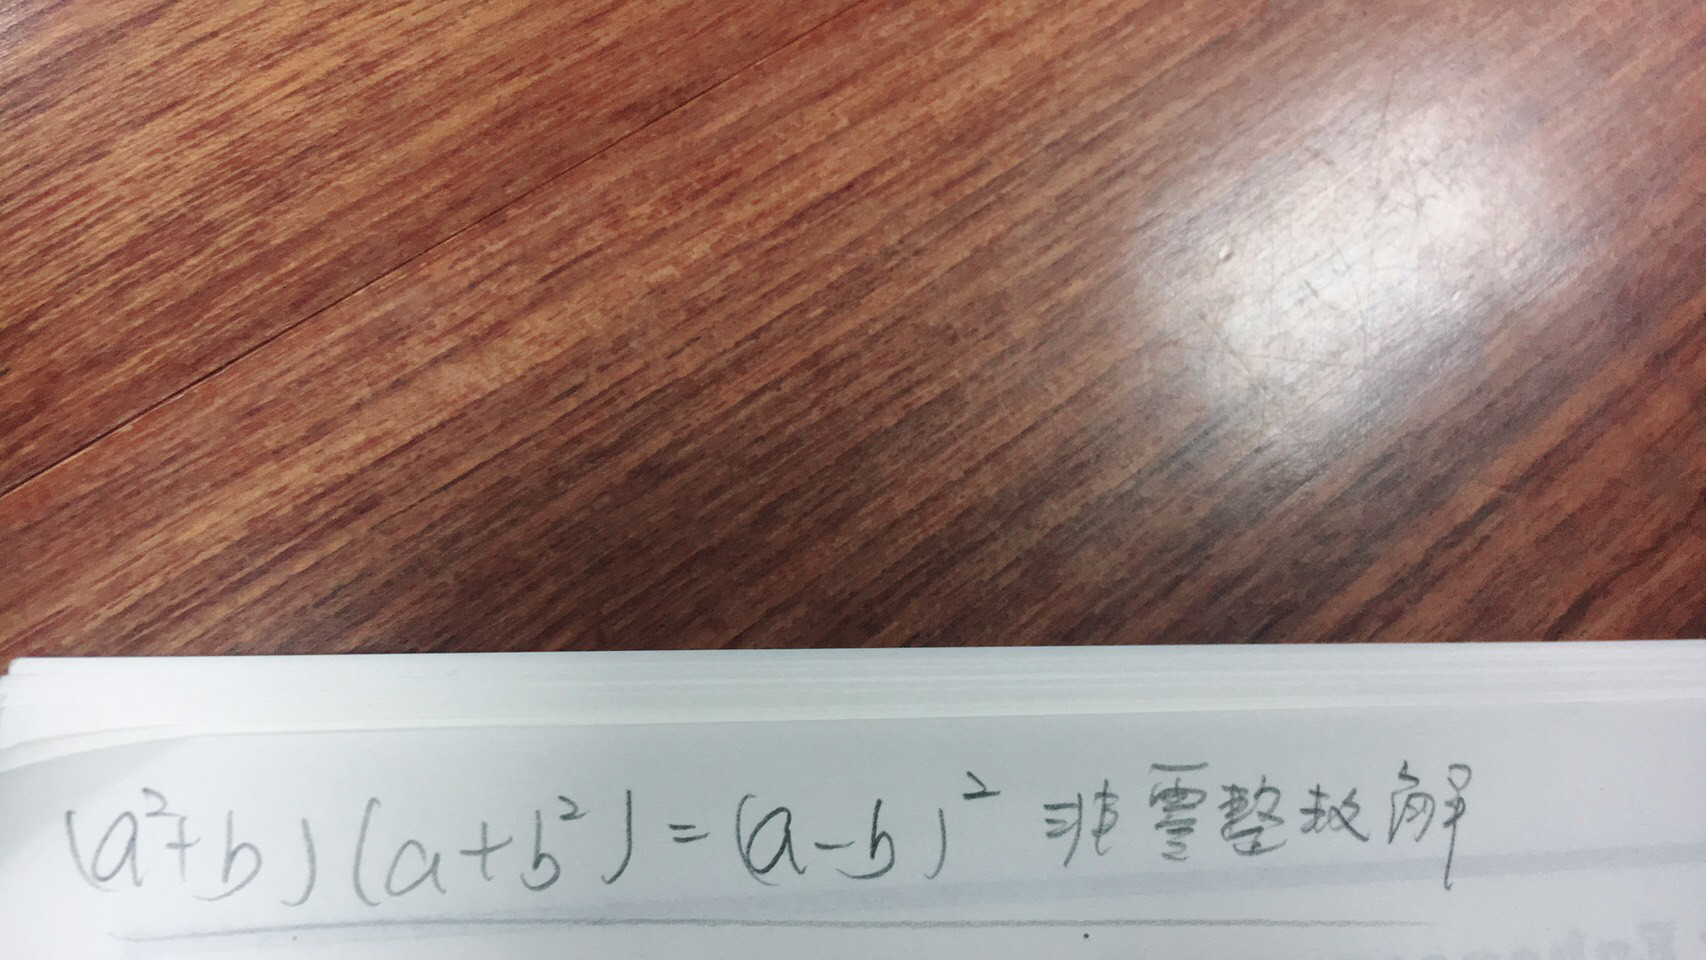 (a²+b)(a+b²)=(a-b)² 非零整数解